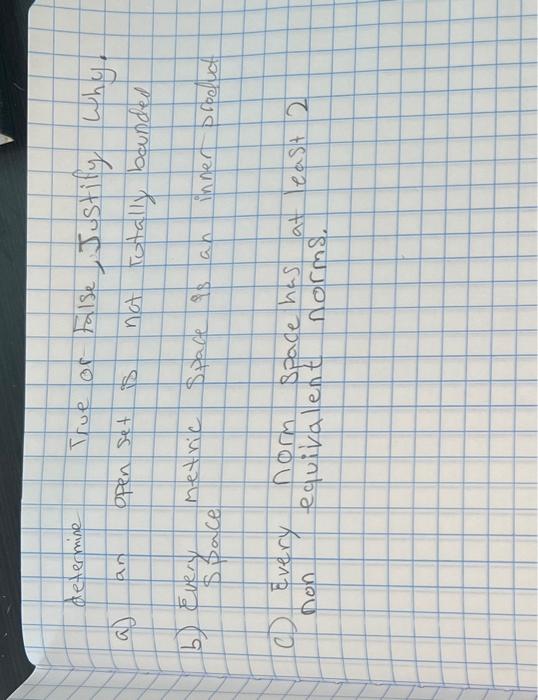 determine True or False, Justify Why.
a) an open set is not totally bounded
b) Every metric space is an inner product
space
c) Every norm space has at least 2
non equivalent norms.